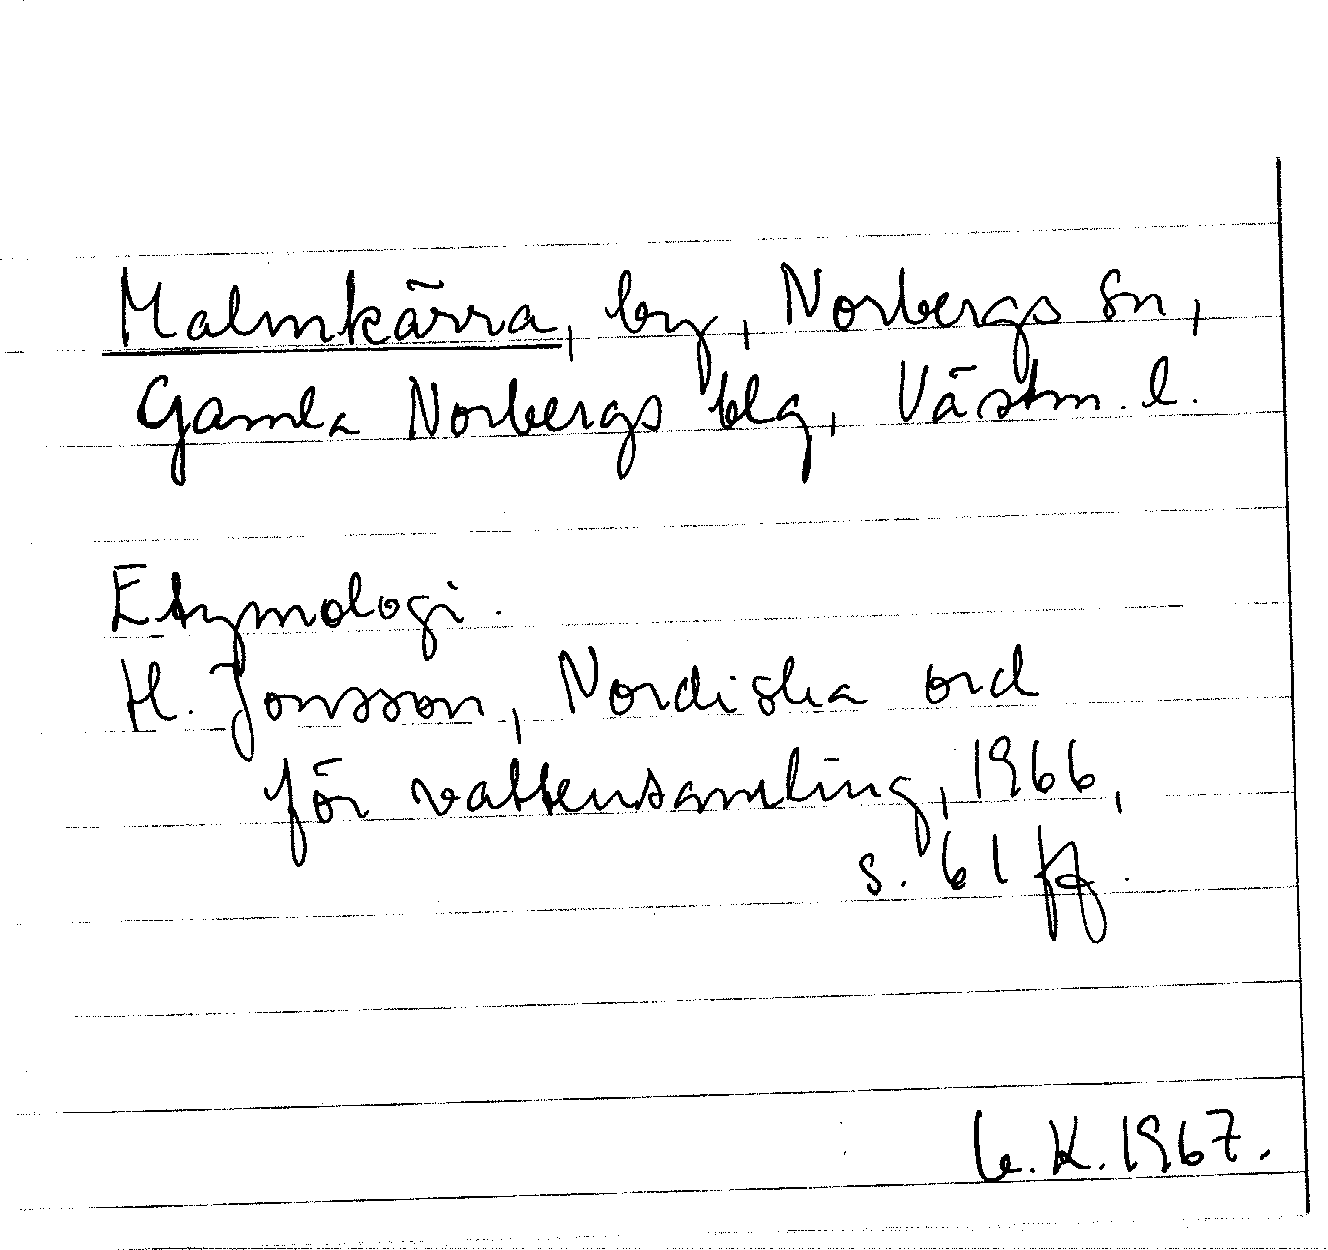 Malmkärra, by, Norbergs sn,
Gamla Norbergs blg, Västm. l.
Etymologi.
H. Jonsson, Nordiska ord
för vattensamling, 1966,
s. 61 ff.
K. 1967.